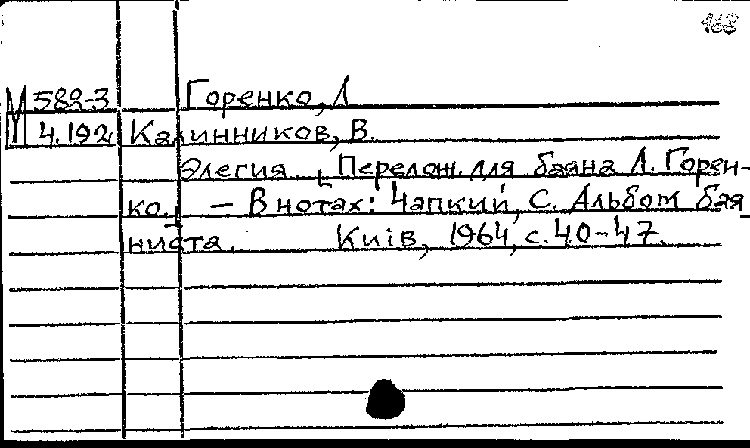 168
М 582-3 Горенко, Л
4.192 Калинников, В.
Элегия. [Перелож. для баяна Л. Горен-
ко.] — В нотах: Чапкий, С. Альбом бая
ниста. Київ, 1964, с. 40-47.